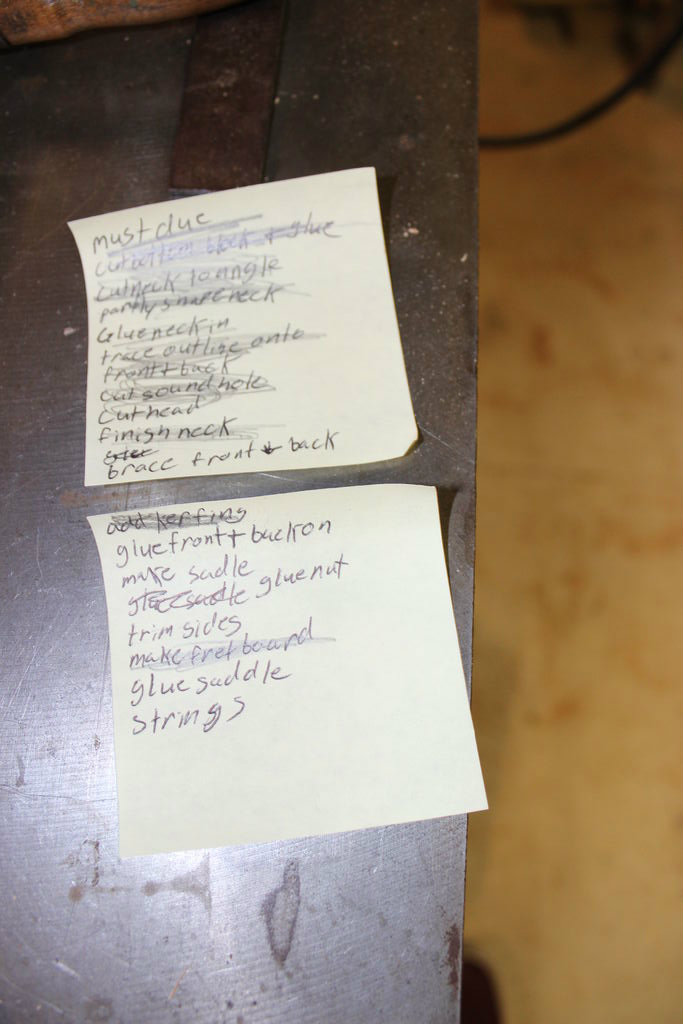 must due
cut bottom block + glue
cut neck to angle
partly shape neck
Glue neck in
trace outline onto
front + back
cut sound hole
cut head
finish neck
brace front + back
add kerfing
glue front + back on
make sadle
glue sadle glue nut
trim sides
make fret board
glue saddle
strings